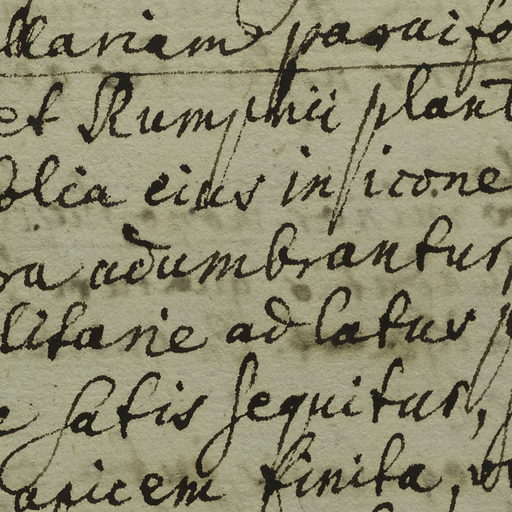 llariam parvifo
et Rumphii plant
folia eius in icone
ra adumbrantur
litarie ad latus p
e satis sequitur,
apicem finita, v